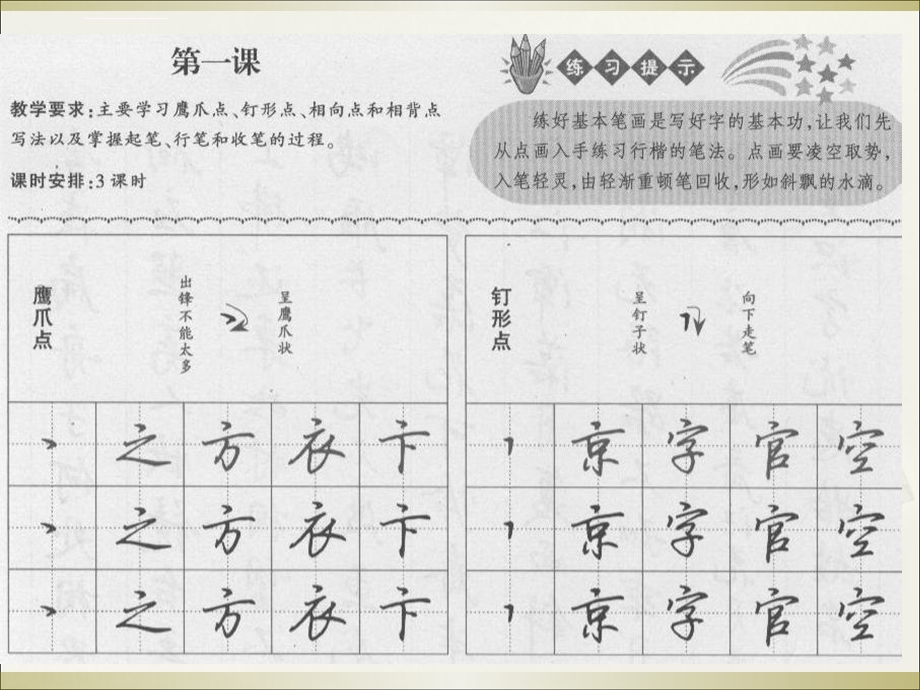 第一课
教学要求:主要学习鹰爪点、钉形点、相向点和相背点
写法以及掌握起笔、行笔和收笔的过程。
课时安排:3课时
练习提示
练好基本笔画是写好字的基本功,让我们先
从点画入手练习行楷的笔法。点画要凌空取势,
入笔轻灵,由轻渐重顿笔回收,形如斜飘的水滴。
鹰爪点
出锋不能太多
呈鹰爪状
钉形点
呈钉子状
向下走笔
丶 之 方 衣 卞
丶 之 方 衣 卞
丶 之 方 衣 卞
丶 京 字 官 空
丶 京 字 官 空
丶 京 字 官 空